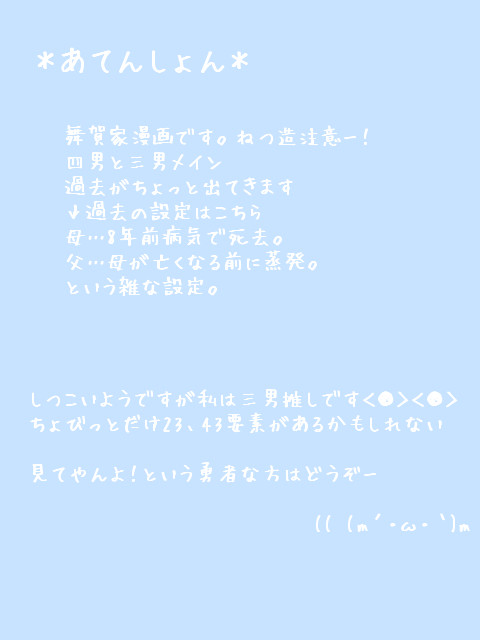 ＊あてんしょん＊
舞賀家漫画です。ねつ造注意ー！
四男と三男メイン
過去がちょっと出てきます
↓過去の設定はこちら
母…8年前病気で死去。
父…母が亡くなる前に蒸発。
という雑な設定。
しつこいようですが私は三男推しです<●><●>
ちょびっとだけ23、43要素があるかもしれない
見てやんよ！という勇者な方はどうぞー
(( (m´・ω・`)m